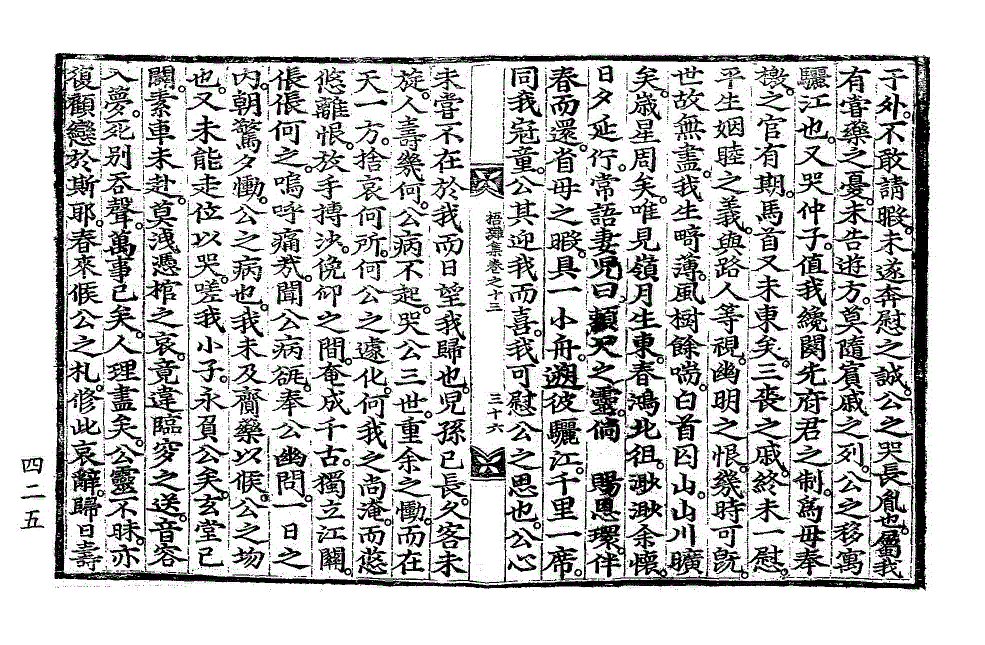 子外。不敢請暇。未遂奔慰之誠。公之哭長胤也。屬我
有嘗藥之憂。未告遊方。莫隨賓戚之列。公之移寓
驪江也。又哭仲子。值我纔闋先府君之制。爲母奉
檄。之官有期。馬首又未東矣。三喪之戚。終未一慰。
平生姻睦之義。與路人等視。幽明之恨。幾時可旣。
世故無盡。我生畸薄。風樹餘喘。白首囚山。山川曠
矣。歲星周矣。唯見嶺月生東。春鴻北徂。渺渺余懷。
日夕延佇。常語妻兒曰。賴天之靈。倘 賜恩環。伴
春而還。省母之暇。具一小舟。遡彼驪江。千里一席。
同我冠童。公其迎我而喜。我可慰公之思也。公心
梧灘集卷之十三 三十六
未嘗不在於我而日望我歸也。兒孫已長。久客未
旋。人壽幾何。公病不起。哭公三世。重余之慟。而在
天一方。捨哀何所。何公之遽化。何我之尙淹。而悠
悠離恨。放手摶決。俛仰之間。奄成千古。獨立江關。
倀倀何之。嗚呼痛哉。聞公病𧧼。奉公幽問。一日之
內。朝驚夕慟。公之病也。我未及齎藥以候。公之歿
也。又未能走位以哭。嗟我小子。永負公矣。玄堂已
闢。素車未赴。莫洩憑棺之哀。竟違臨穸之送。音容
入夢。死別吞聲。萬事已矣。人理盡矣。公靈不昧。亦
復顧戀於斯耶。春來候公之札。修此哀辭。歸日壽
四二五